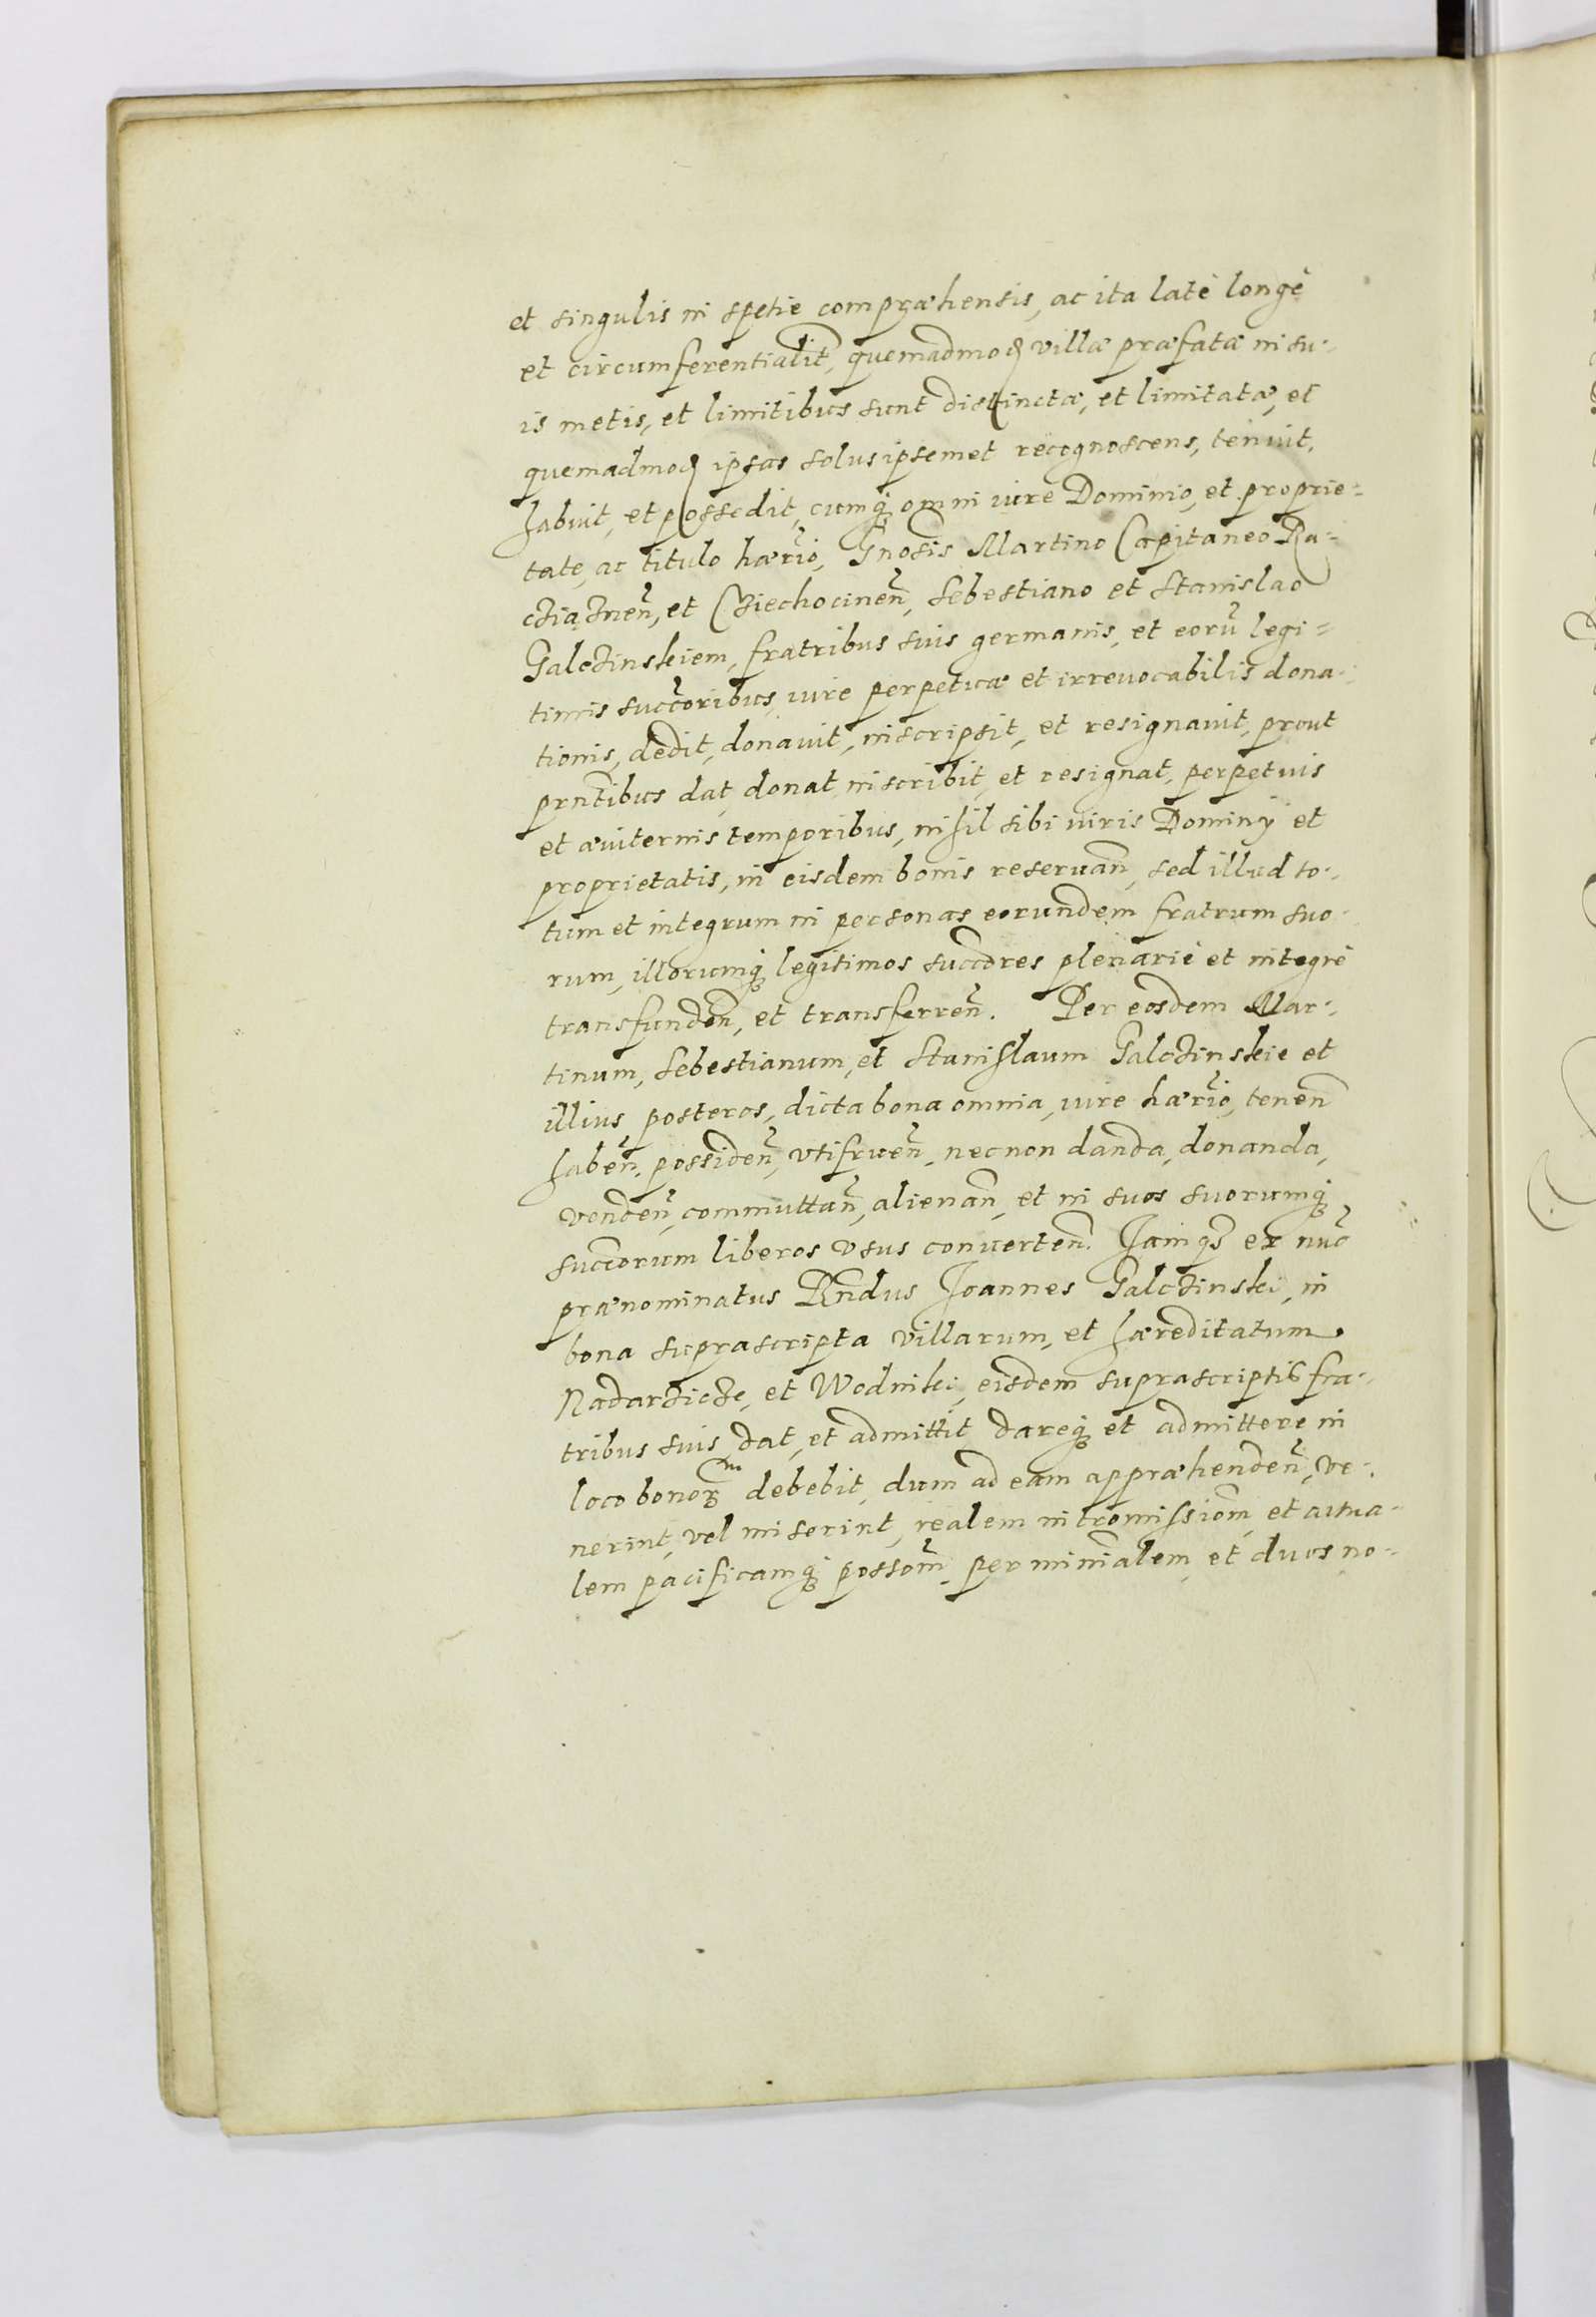 et singulis in spetie compræhensis, ac ita latè longè
et circumferentialit̃, quemadmoꝺ villæ præfatæ in su-
is metis, et limitibus sunt distinctæ, et limitatæ, et
quemadmoꝺ ipsas solus ipsemet recognoscens, tenuit,
habuit, et possedit, cumq; omni iure Dominio, et proprie-
tate, ac titulo hær̃io, G̃nosis Martino Capitaneo Ra-
cziążneñ, et Cziechocineñ, Sebestiano et Stanislao
Galczinskiem, fratribus suis germanis, et eorũ legi-
timis succ̃oribus, iure perpetuæ et irreuocabilis dona-
tionis, dedit, donauit, inscripsit, et resignauit, prout
prñtibus dat, donat, inscribit, et resignat, perpetuis
et æuiternis temporibus, nihil sibi iuris Dominÿ et
proprietatis, in eisdem bonis reseruañ, sed illud to-
tum et integrum in personas eorundem fratrum suo-
rum, illorumq; legitimos succ̃ores plenariè et integrè
transfundeñ, et transferreñ. Per eosdem Mar-
tinum, Sebestianum, et Stanislaum Galczinskie et
illius posteros, dicta bona omnia, iure hær̃io, teneñ
habeñ, possideñ, vtifrueñ, necnon danda, donanda,
vendeñ, commuttañ, alienañ, et in suos suorumq;
succ̃orum liberos vsus conuerteñ. Jamq; ex nũc
prænominatus Rñdus Joannes Galczinski, in
bona suprascripta villarum, et hæreditatum
Nadarzicze, et Wodniki, eisdem suprascriptis fra-
tribus suis, dat, et admittit dareq; et admittere in
loco bonoꝝ m debebit, dum ad eam appræhendeñ, ve-
nerint, vel miserint, realem intromissiom̃ et actua-
lem pacificamq; possom̃, per min̄alem, et duos no-